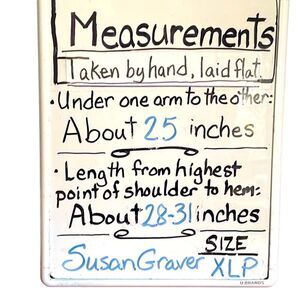 Measurements
Taken by hand, laid flat.
• Under one arm to the other:
About 25 inches
• Length from highest
point of shoulder to hem:
About 28-31 inches
SIZE
Susan Graver XLP
U BRANDS